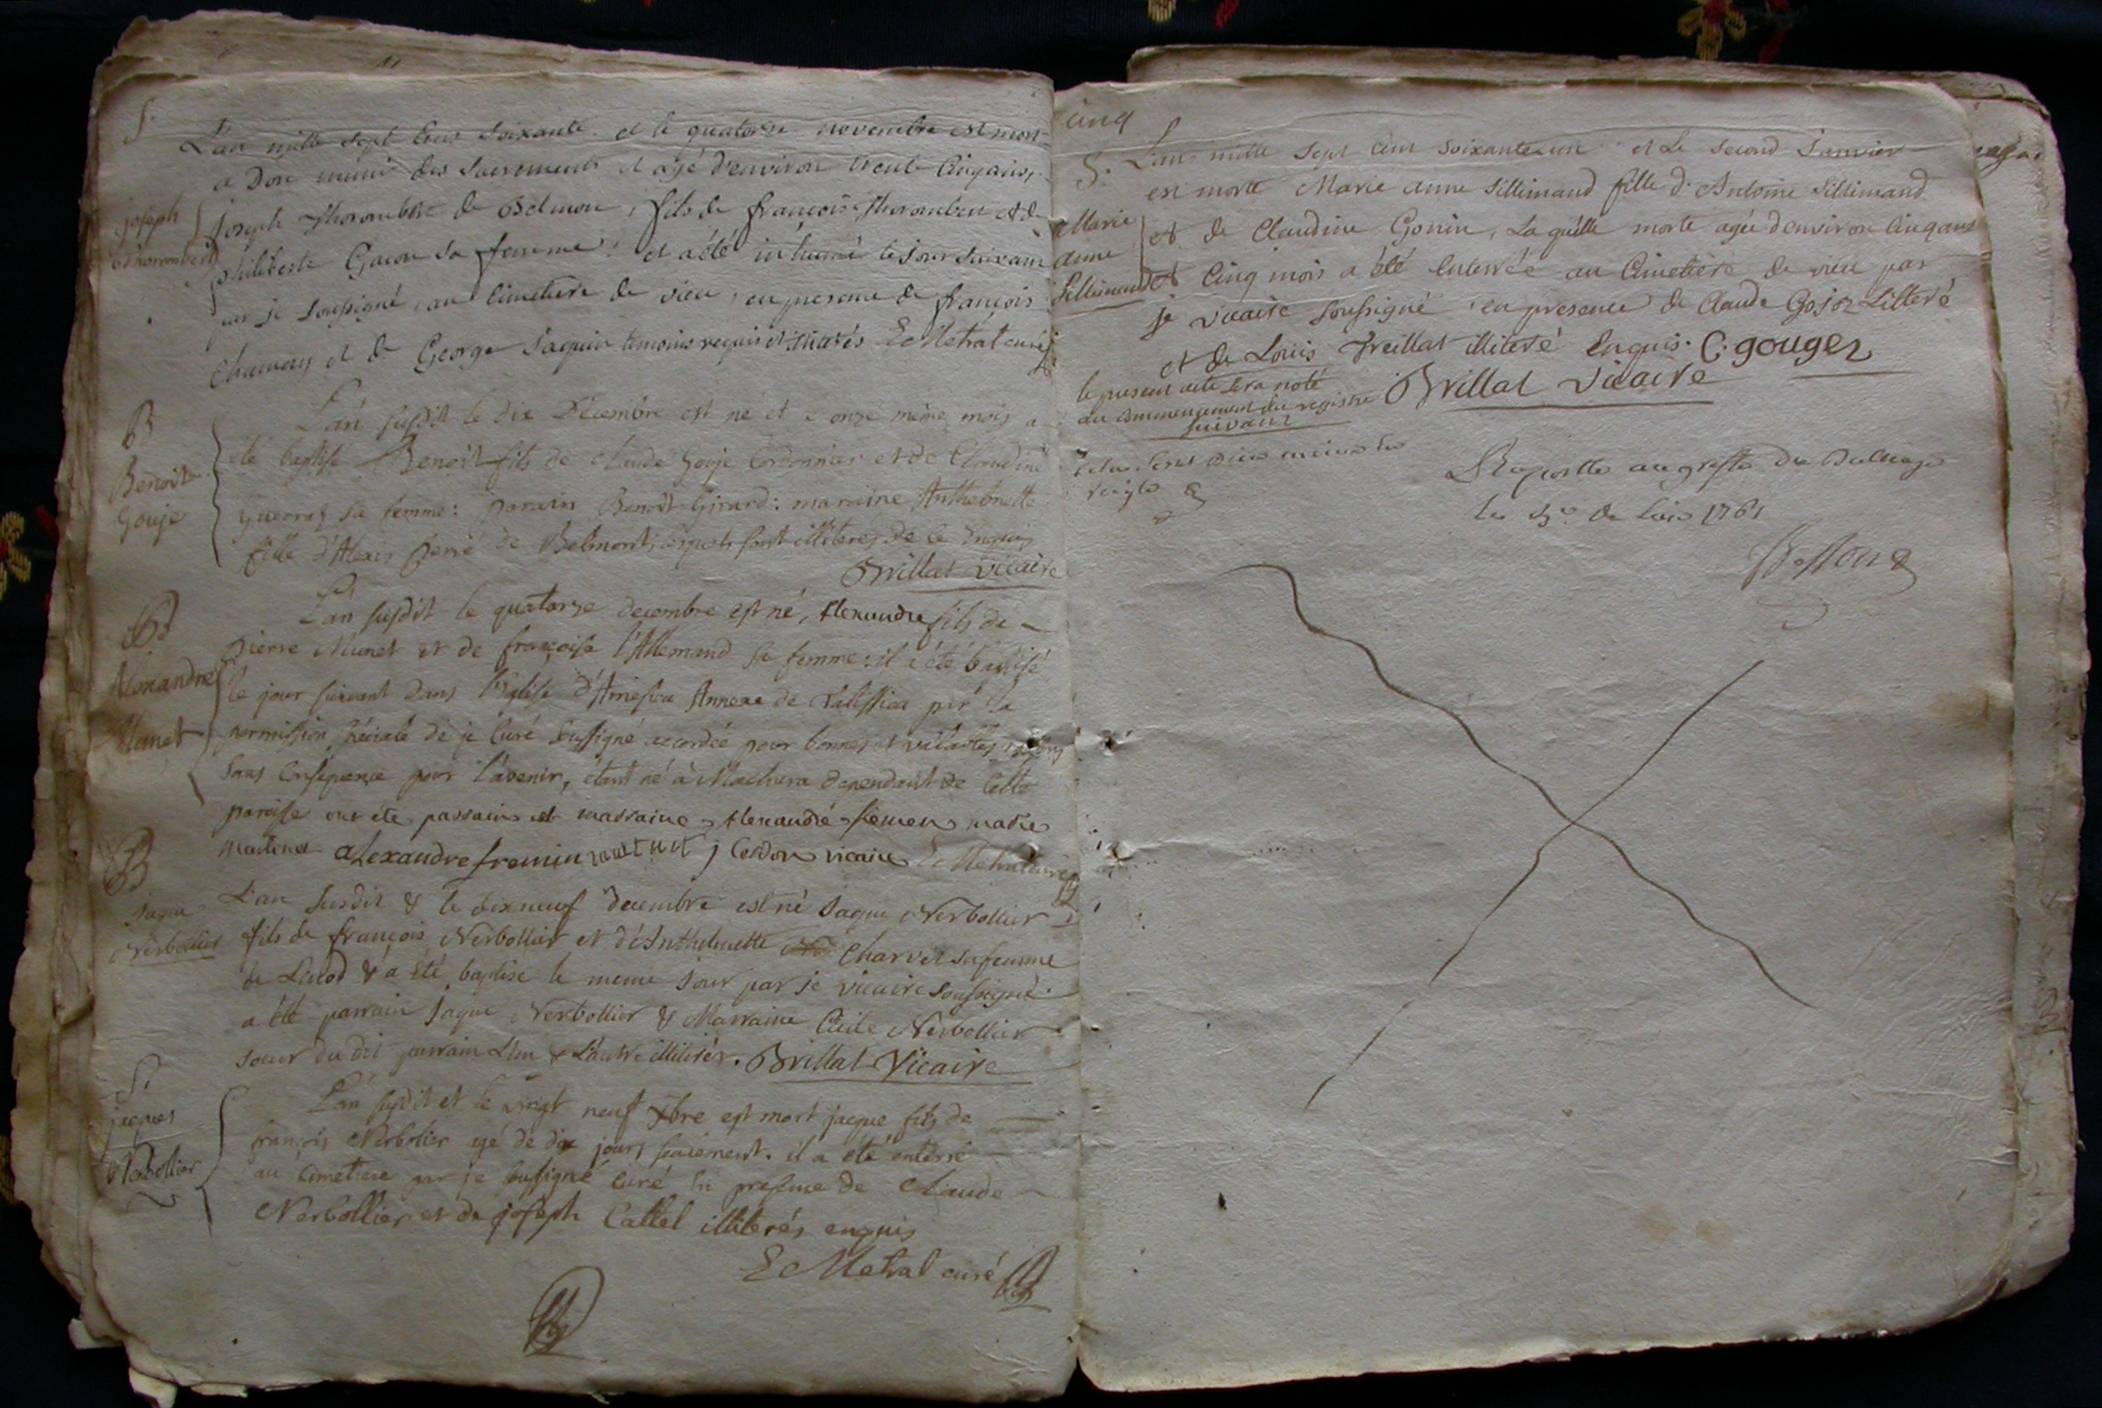 S.
L'an mille sept cent soixante et le quatorze novembre est mort
a Don muni des sacrements et agé d'environ trente cinq ans,
joseph thorombert
joseph thorombert de Belmon, fils de françois thorombert et de
philiberte Gacon sa femme, et a été inhumé le jour suivant
par je soussigné, au cimetiere de vieu, en presence de françois
et de George Jaquin temoins requis et E Metral curé
B
Benoit
Gouje
L'an susdit le dix Décembre est né et le onze même mois a
été baptisé Benoît fils de claude Gouje Cordonnier et de Claudine
sa femme: parain Benoît Girard: maraine Anthelmette
fille d'Alexis de Belmont, lesquels sont illiteres de ce Enquis
Brillat Vicaire
B
Alexandre
Munet
L'an susdit le quatorze decembre est né, Alexandre fils de
pierre Munet et de françoise l'Allemand sa femme: il a été baptisé
le jour suivant dans l'Eglise d' Annexe de par la
permission speciale de je Curé soussigné accordée pour bonnes et raisons
sans Consequence pour l'avenir, étant né à dependant de Cette
paroisse ont été parrain et marraine Alexandre marie
martinet alexandre fremin j Cordon vicaire E Metral curé
B
Jaque
Nerbollier
L'an susdit & le dixneuf decembre est né Jaque Nerbollier
fils de françois Nerbollier et d'Anthelmette Charvet sa femme
de & a été baptisé le meme jour par je vicaire soussigné
a été parrain Jaque Nerbollier & Marraine Cécile Nerbollier
soeur du dit parrain L'un & L'autre illiterés. Brillat Vicaire
S.
jacques
Nerbollier
L'an susdit et le vingt neuf Xbre est mort jacque fils de
françois Nerbolier agé de dix jours seulement. il a été enterré
au Cimettiere par je soussigné curé En presence de Claude
Nerbollier et de joseph Cattel illiterés enquis
E Metral curé
cinq
S.
L'an mille sept cent soixante un et Le second Janvier
est morte Marie anne Sillimand fille d'Antoine Sillimand
Marie
anne
Sillimand
et de Claudine Gonin, Laquelle morte agée d'environ cinq ans
et cinq mois a été enterrée au Cimetière de vieu par
je vicaire soussigné en presence de Claude Gojoz Litteré
et de Louis Treillat illiteré Enquis. C. gouger
Brillat Vicaire
le present acte sera noté
au commencement du registre
suivant
Raporté au greffe du Balliage
le de 1761